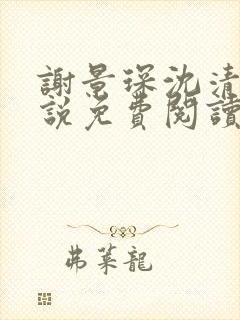 謝景琛沈清
說免費閱讀
弗萊龍